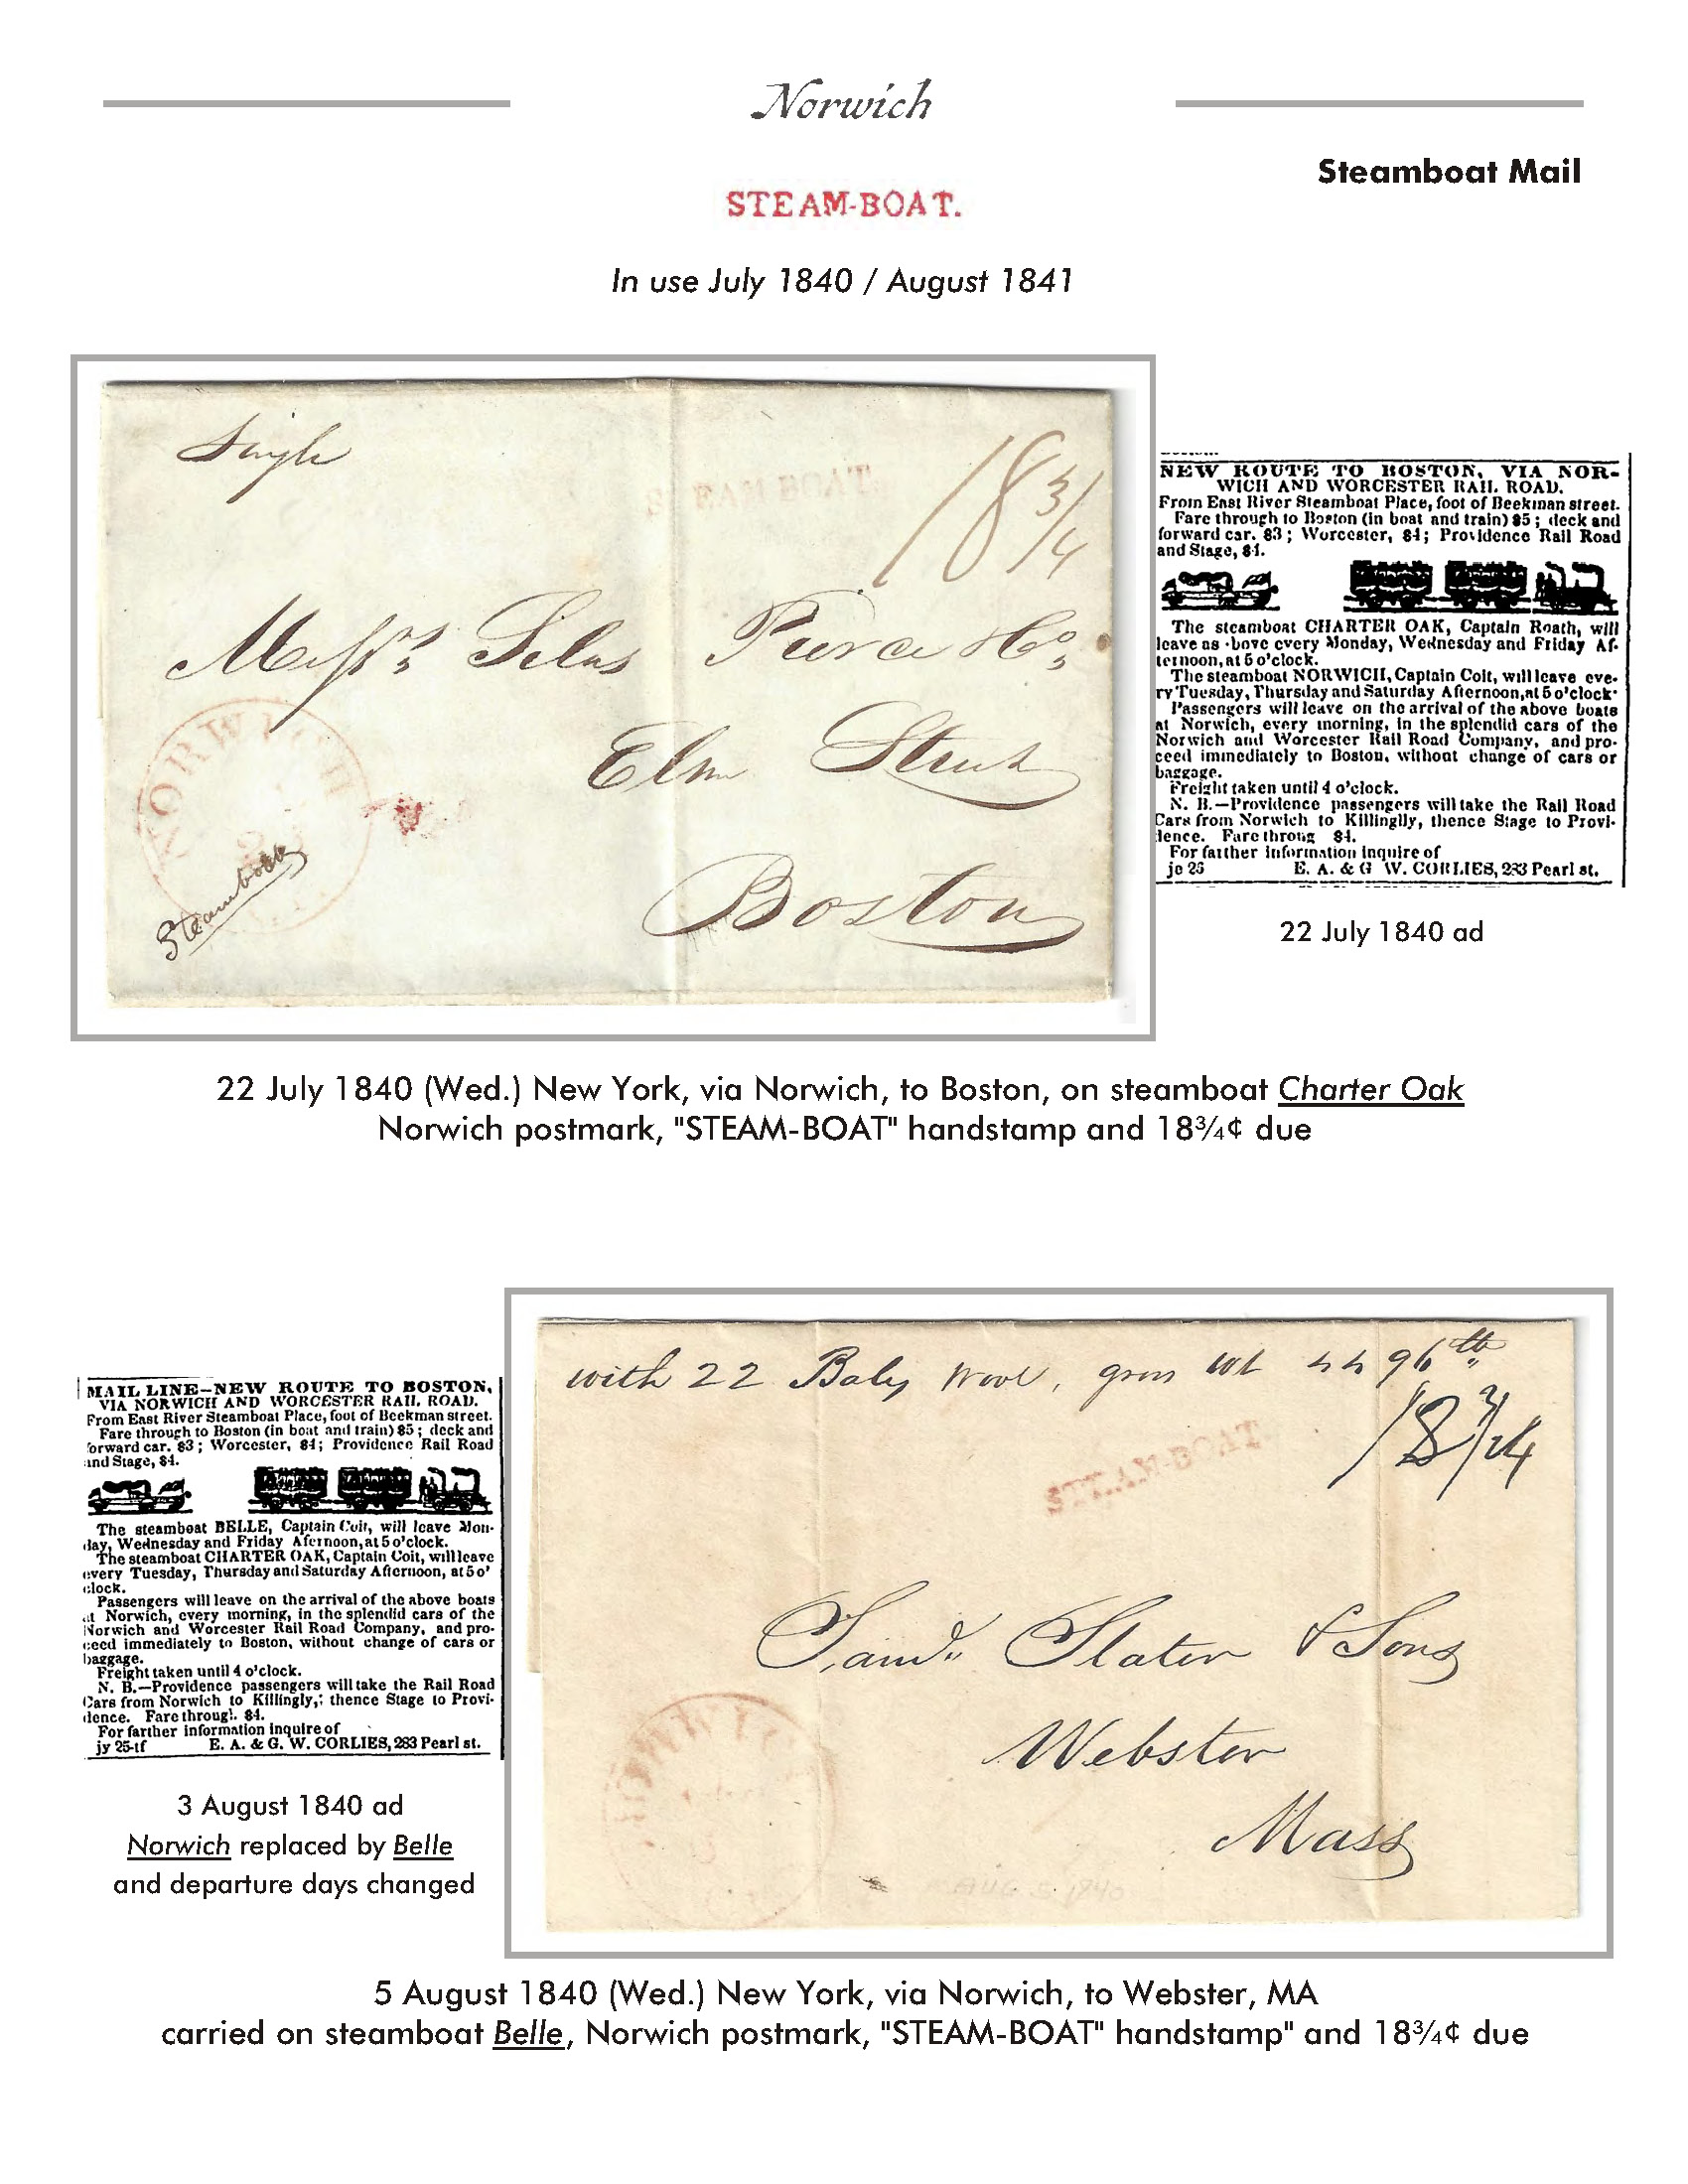 Norwich
Steamboat Mail
STEAM-BOAT.
In use July 1840 / August 1841
Single
STEAM BOAT.
18 3/4
Messrs Silas Pierce & Co,
Elm Street
Boston
NORWICH
Steamboat
NEW ROUTE TO BOSTON, VIA NOR-
WICH AND WORCESTER RAIL ROAD.
From East River Steamboat Place, foot of Beekman street.
Fare through to Boston (in boat and train) $5; deck and
forward car. $3; Worcester, $4; Providence Rail Road
and Stage, $4.
The steamboat CHARTER OAK, Captain Roath, will
leave as bove every Monday, Wednesday and Friday Af-
ternoon, at 5 o'clock.
The steamboat NORWICH, Captain Coit, will leave eve-
ry Tuesday, Thursday and Saturday Afternoon, at 5 o'clock·
Passengers will leave on the arrival of the above boats
at Norwich, every morning, in the splendid cars of the
Norwich and Worcester Rail Road Company, and pro-
ceed immediately to Boston, without change of cars or
baggage.
Freight taken until 4 o'clock.
N. B.—Providence passengers will take the Rail Road
Cars from Norwich to Killinglly, thence Stage to Provi-
dence. Fare throug $4.
For farther information inquire of
je 25 E. A. & G W. CORLIES, 283 Pearl st.
22 July 1840 ad
22 July 1840 (Wed.) New York, via Norwich, to Boston, on steamboat Charter Oak
Norwich postmark, "STEAM-BOAT" handstamp and 18¾¢ due
MAIL LINE—NEW ROUTE TO BOSTON,
VIA NORWICH AND WORCESTER RAIL ROAD.
From East River Steamboat Place, foot of Beekman street.
Fare through to Boston (in boat and train) $5; deck and
forward car. $3; Worcester, $4; Providence Rail Road
and Stage, $4.
The steamboat BELLE, Captain Coit, will leave Mon-
day, Wednesday and Friday Afternoon, at 5 o'clock.
The steamboat CHARTER OAK, Captain Coit, will leave
every Tuesday, Thursday and Saturday Afternoon, at 5 o'
clock.
Passengers will leave on the arrival of the above boats
at Norwich, every morning, in the splendid cars of the
Norwich and Worcester Rail Road Company, and pro-
ceed immediately to Boston, without change of cars or
baggage.
Freight taken until 4 o'clock.
N. B.—Providence passengers will take the Rail Road
Cars from Norwich to Killingly,; thence Stage to Provi-
dence. Fare through. $4.
For farther information inquire of
jy 25-tf E. A. & G. W. CORLIES, 283 Pearl st.
3 August 1840 ad
Norwich replaced by Belle
and departure days changed
with 22 Bales Wool, gross wt 4496 lb
18 3/4
STEAM-BOAT
Saml. Slater & Sons
Webster
Mass
NORWIC
AUG 5 1840
5 August 1840 (Wed.) New York, via Norwich, to Webster, MA
carried on steamboat Belle, Norwich postmark, "STEAM-BOAT" handstamp" and 18¾¢ due